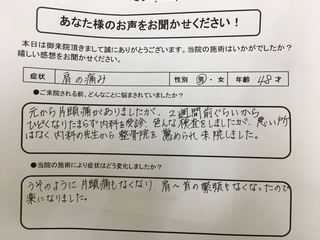 あなた様のお声をお聞かせください！
本日は御来院頂きまして誠にありがとうございます。当院の施術はいかがでしたか？
嬉しい感想をお聞かせください。
症状 肩の痛み 性別 男・女 年齢 48才
●ご来院される前、どんなことに悩まれていましたか？
元から片頭痛がありましたが、2週間前ぐらいから
ひどくなりたまらず内科を受診、色んな検査をしましたが、悪い所
はなく内科の先生から整骨院を薦められ来院しました。
●当院の施術により症状はどう変化しましたか？
うそのように片頭痛もなくなり、肩〜首の緊張もなくなったので
楽になりました。